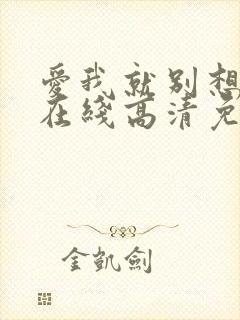 愛我就別想
在綫高清免
金凱劍